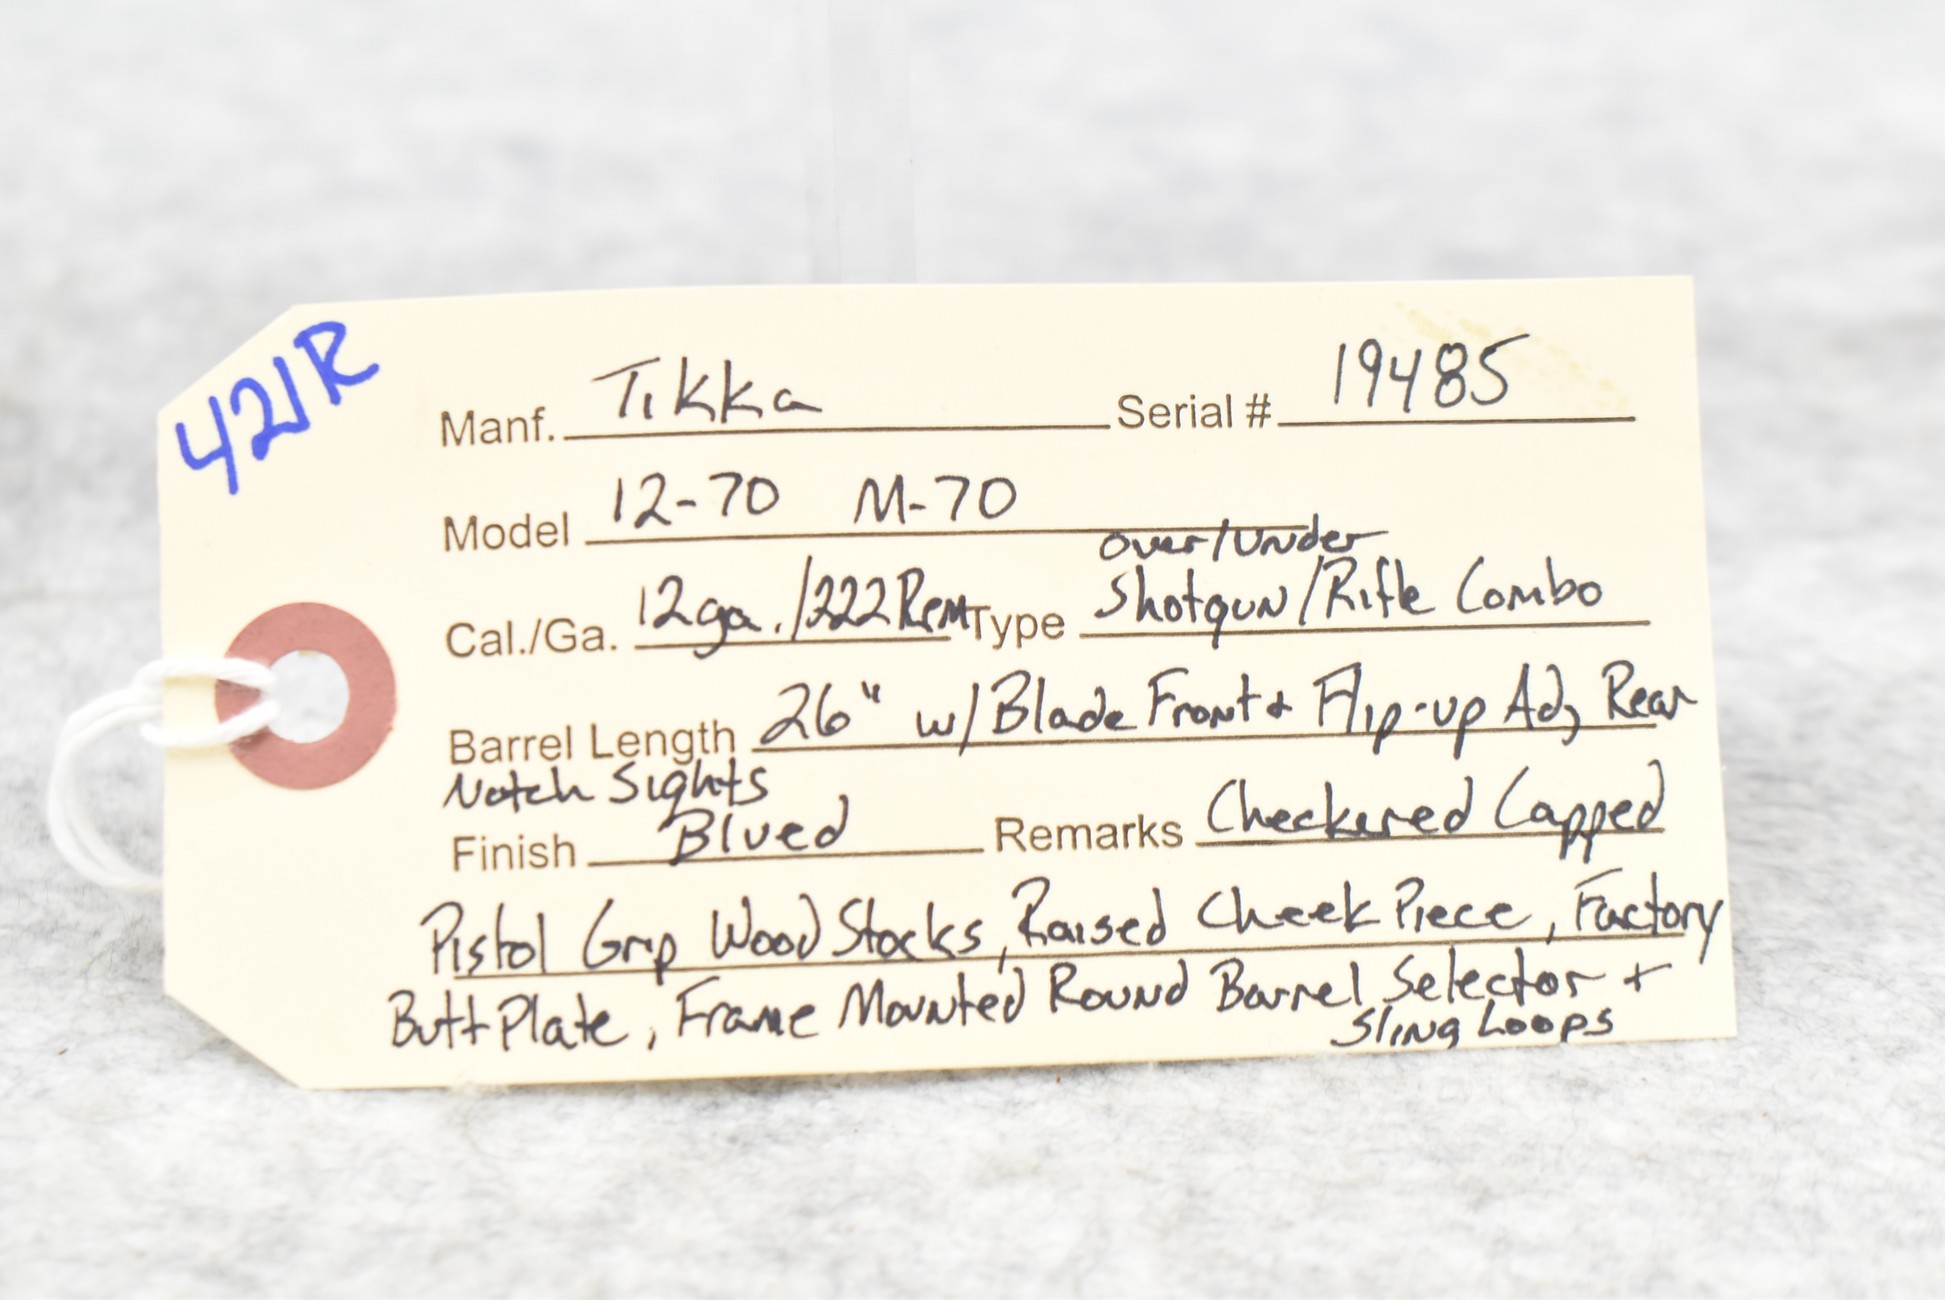 421R
Manf. Tikka Serial # 19485
Model 12-70 M-70
Over/Under
Cal./Ga. 12ga./222Rem Type Shotgun/Rifle Combo
Barrel Length 26" w/Blade Front + Flip-up Adj Rear
Notch Sights
Finish Blued Remarks Checkered Capped
Pistol Grip Wood Stocks, Raised Cheek Piece, Factory
Butt Plate, Frame Mounted Round Barrel Selector +
Sling Loops